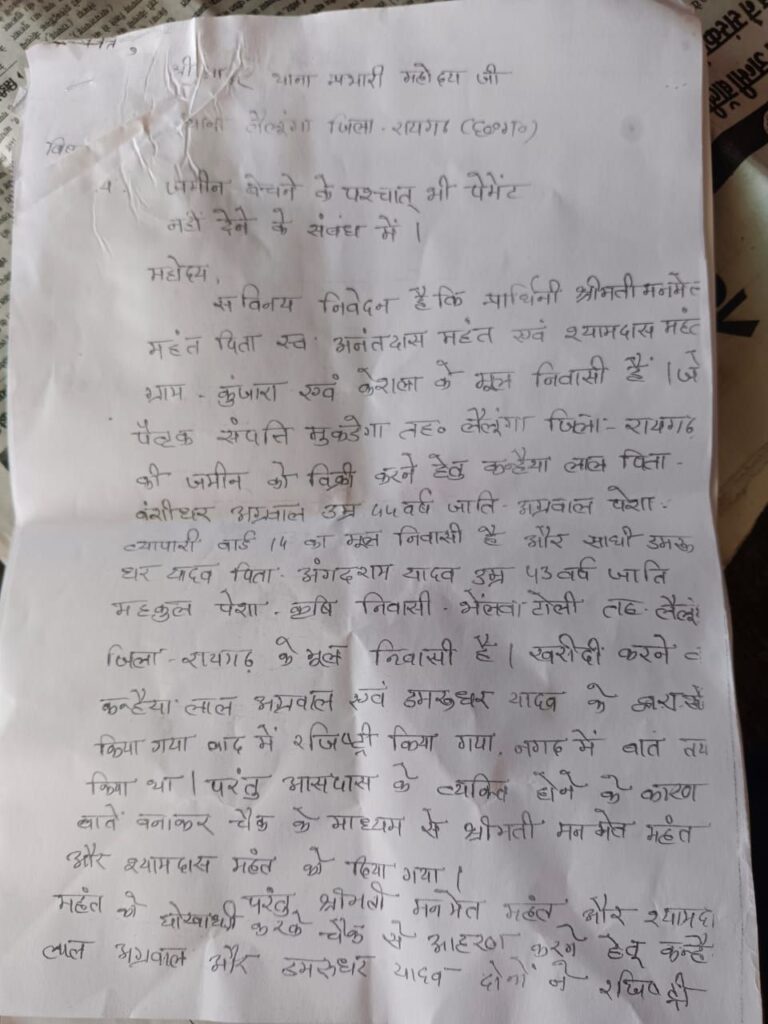 श्रीमान थाना प्रभारी महोदय जी
थाना लैलूंगा जिला - रायगढ़ (छ०ग०)
जमीन बेचने के पश्चात् भी पेमेंट
नहीं देने के संबंध में |
महोदय,
सविनय निवेदन है कि प्रार्थिनी श्रीमती मनमेत
महंत पिता स्व. अनंतदास महंत एवं श्यामदास महंत
ग्राम - कुंजारा एवं केराबा के मूल निवासी हैं | जो
पैतृक संपत्ति मुकडेगा तह० लैलूंगा जिला - रायगढ़
की जमीन को विक्री करने हेतु कन्हैया लाल पिता -
बंशीधर अग्रवाल उम्र 44 वर्ष जाति - अग्रवाल पेशा -
व्यापारी वार्ड 14 का मूल निवासी है और साथी डमरू
धर यादव पिता - अंगदराम यादव उम्र 43 वर्ष जाति
महकुल पेशा - कृषि निवासी - भेंलवाटोली तह - लैलूं
जिला - रायगढ़ के मूल निवासी है | खरीदी करने
कन्हैया लाल अग्रवाल एवं डमरूधर यादव के
किया गया बाद में रजिष्ट्री किया गया, नगद में बात तय
किया था | परंतु आसपास के व्यक्ति होने के कारण
बातें बनाकर चैक के माध्यम से श्रीमती मनमेत महंत
और श्यामदास महंत को दिया गया |
परंतु श्रीमती मनमेत महंत और श्यामदा
महंत को धोखाधड़ी करके चैक से आहरण करने हेतु कन्है
लाल अग्रवाल और डमरूधर यादव दोनों ने रजिष्ट्री